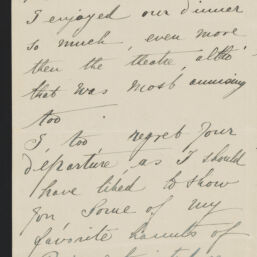 I enjoyed our dinner
so much, even more
then the theatre, altho'
that was most amusing
too.
I, too, regret your
departure, as I should
have liked to show
you some of my
favorite haunts of